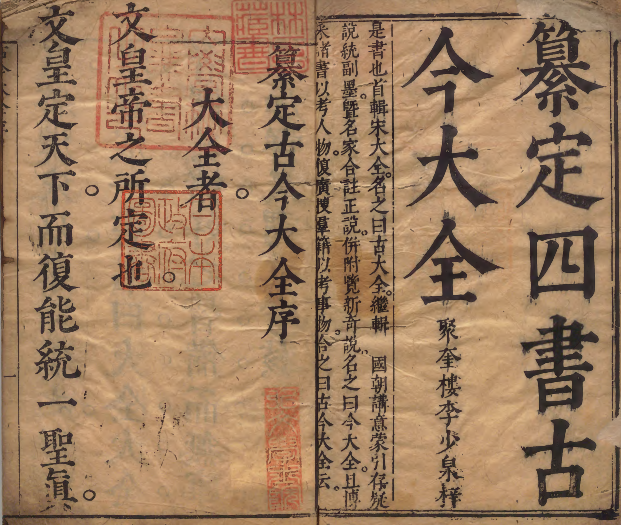 纂定四書古
今大全
聚奎樓李少泉梓
是書也首輯宋大全名之曰古大全繼輯 國朝講意蒙引存疑
說統副墨曁名家合註正說併附覽新奇說名之曰今大全且博
采諸書以考人物復廣搜羣籍以考事物合之曰古今大全云
纂定古今大全序
大全者
文皇帝之所定也
文皇定天下而復能統一聖眞
日本
政府